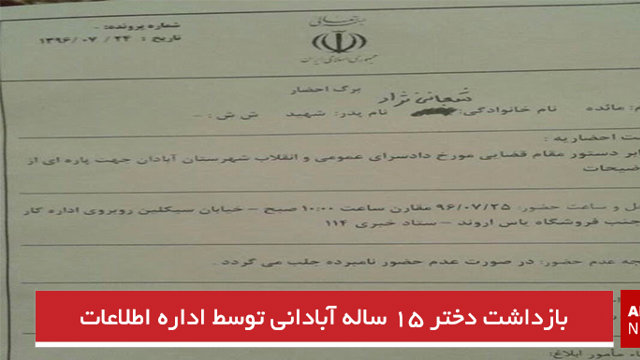 بسمه تعالی
جمهوری اسلامی ایران
شماره پرونده: -
تاریخ : ۲۴ / ۰۷ / ۱۳۹۶
برگ احضار
شعبانی نژاد
مائده نام خانوادگی: نام پدر: شهید ش ش: -
احضاریه :
دستور مقام قضایی مورخ دادسرای عمومی و انقلاب شهرستان آبادان جهت پاره ای از
ل و ساعت حضور: ۹۶/۰۷/۲۵ مقارن ساعت ۱۰:۰۰ صبح – خیابان سیکلین روبروی اداره کار
جنب فروشگاه یاس اروند – ستاد خبری ۱۱۴
عدم حضور: در صورت عدم حضور نامبرده جلب می گردد.
بازداشت دختر ۱۵ ساله آبادانی توسط اداره اطلاعات
A
N
مأمور ابلاغ: